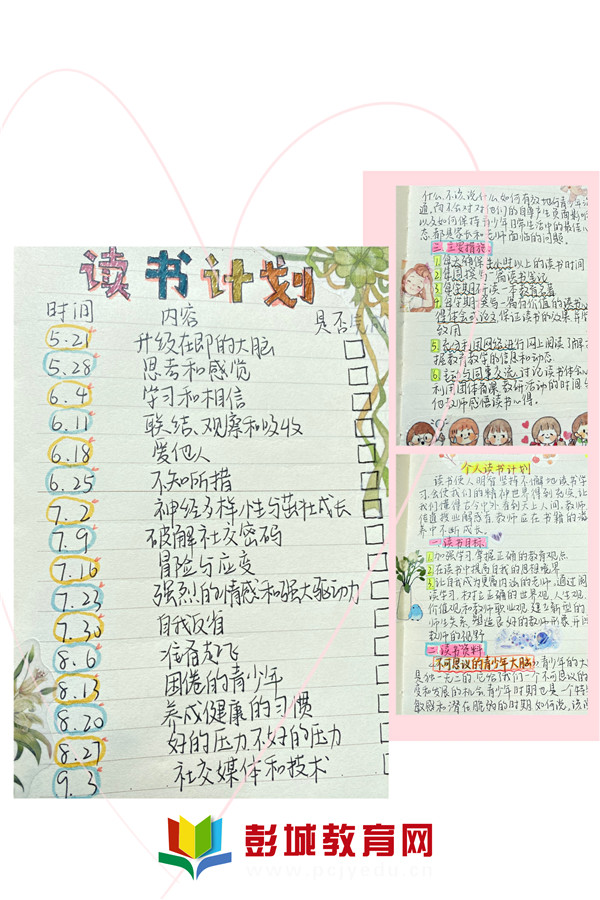 读书计划
时间 内容 是否
5.21 升级在即的大脑
5.28 思考和感觉
6.4 学习和相信
6.11 联结、观察和吸收
6.18 爱他人
6.25 不知所措
7.2 神经多样性与茁壮成长
7.9 破解社交密码
7.16 冒险与应变
7.23 强烈的情感和强大驱动力
7.30 自我反省
8.6 准备起飞
8.13 困倦的青少年
8.20 养成健康的习惯
8.27 好的压力、不好的压力
9.3 社交媒体和技术
什么、不该说什么,如何有效地与青少年
通,而不会对他们的自尊产生负面影
以及如何保持青少年日常生活中的最佳
态,都是家长和老师面临的问题。
三、主要措施:
1.每天确保半小时以上的读书时间
2.每周撰写一篇读书笔记
3.每学期研读一本教育名著
4.每学期撰写一篇有价值的读
得体会或论文,保证读书的效果
较用
5.充分利用网络进行网上阅读了解
握教育教学的信息和动态
6.主动与同事交流,讨论读书体会
利用团体备课、教研活动的时间
他教师感悟读书心得。
个人读书计划
读书使人明智,坚持不懈地读书学
习,会使我们的精神世界得到充实,让
我们懂得古今中外、看到天上人间。教师
传道授业解惑者,教师应在书籍的滋
养中不断成长。
一、读书目标
1.加强学习,掌握正确的教育观点
2.在读书中提高自我的思想境界
3.让自我成为更优秀的老师,通过阅
读学习,树立正确的世界观、人生观、
价值观和教师职业观,建立新型的
师生关系,塑造良好的教师形象,开阔
教师的视野
二、读书资料
《不可思议的青少年大脑》青少年的大
是独一无二的,它给了我们一个不可思议的
变和发展的机会,青少年时期也是一个特
敏感和潜在脆弱的时期,如何说、该
彭城教育网